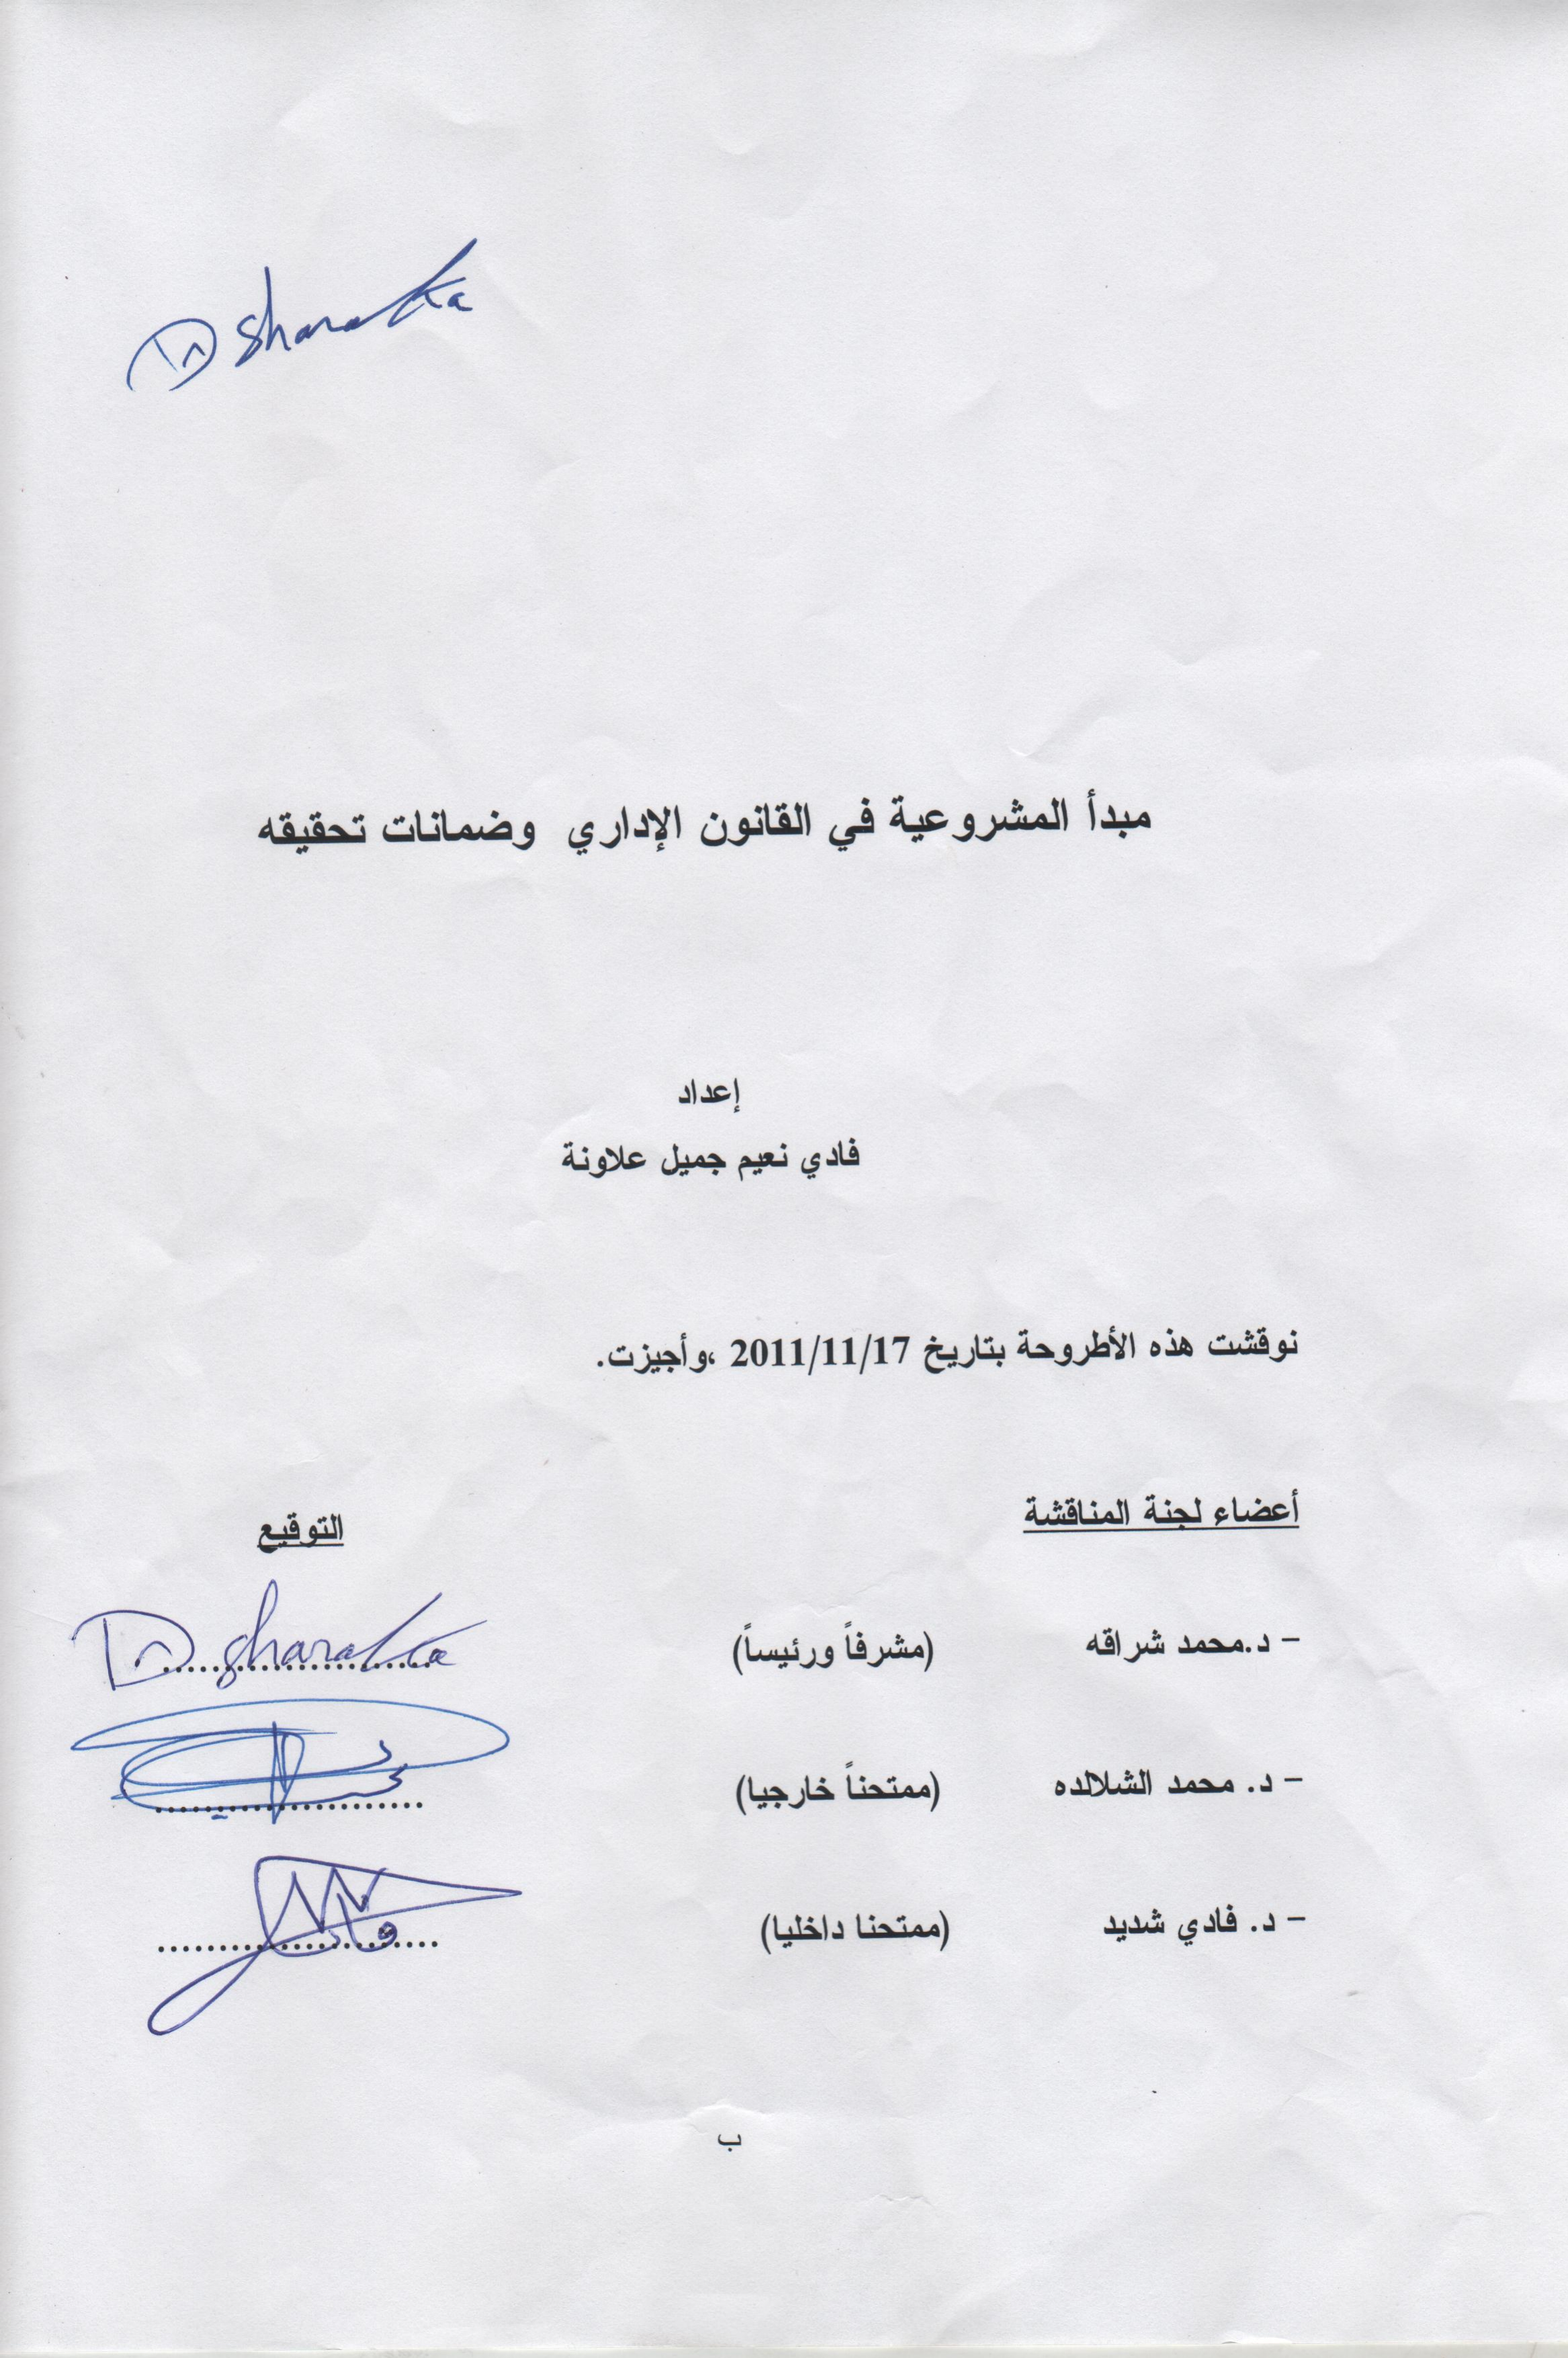 Dr Sharaka
مبدأ المشروعية في القانون الإداري وضمانات تحقيقه
إعداد
فادي نعيم جميل علاونة
نوقشت هذه الأطروحة بتاريخ 2011/11/17 ،وأجيزت.
أعضاء لجنة المناقشة التوقيع
– د.محمد شراقه (مشرفاً ورئيساً) Dr. Sharaka
– د. محمد الشلالده (ممتحناً خارجيا) ......................
– د. فادي شديد (ممتحنا داخليا) ......................
ب